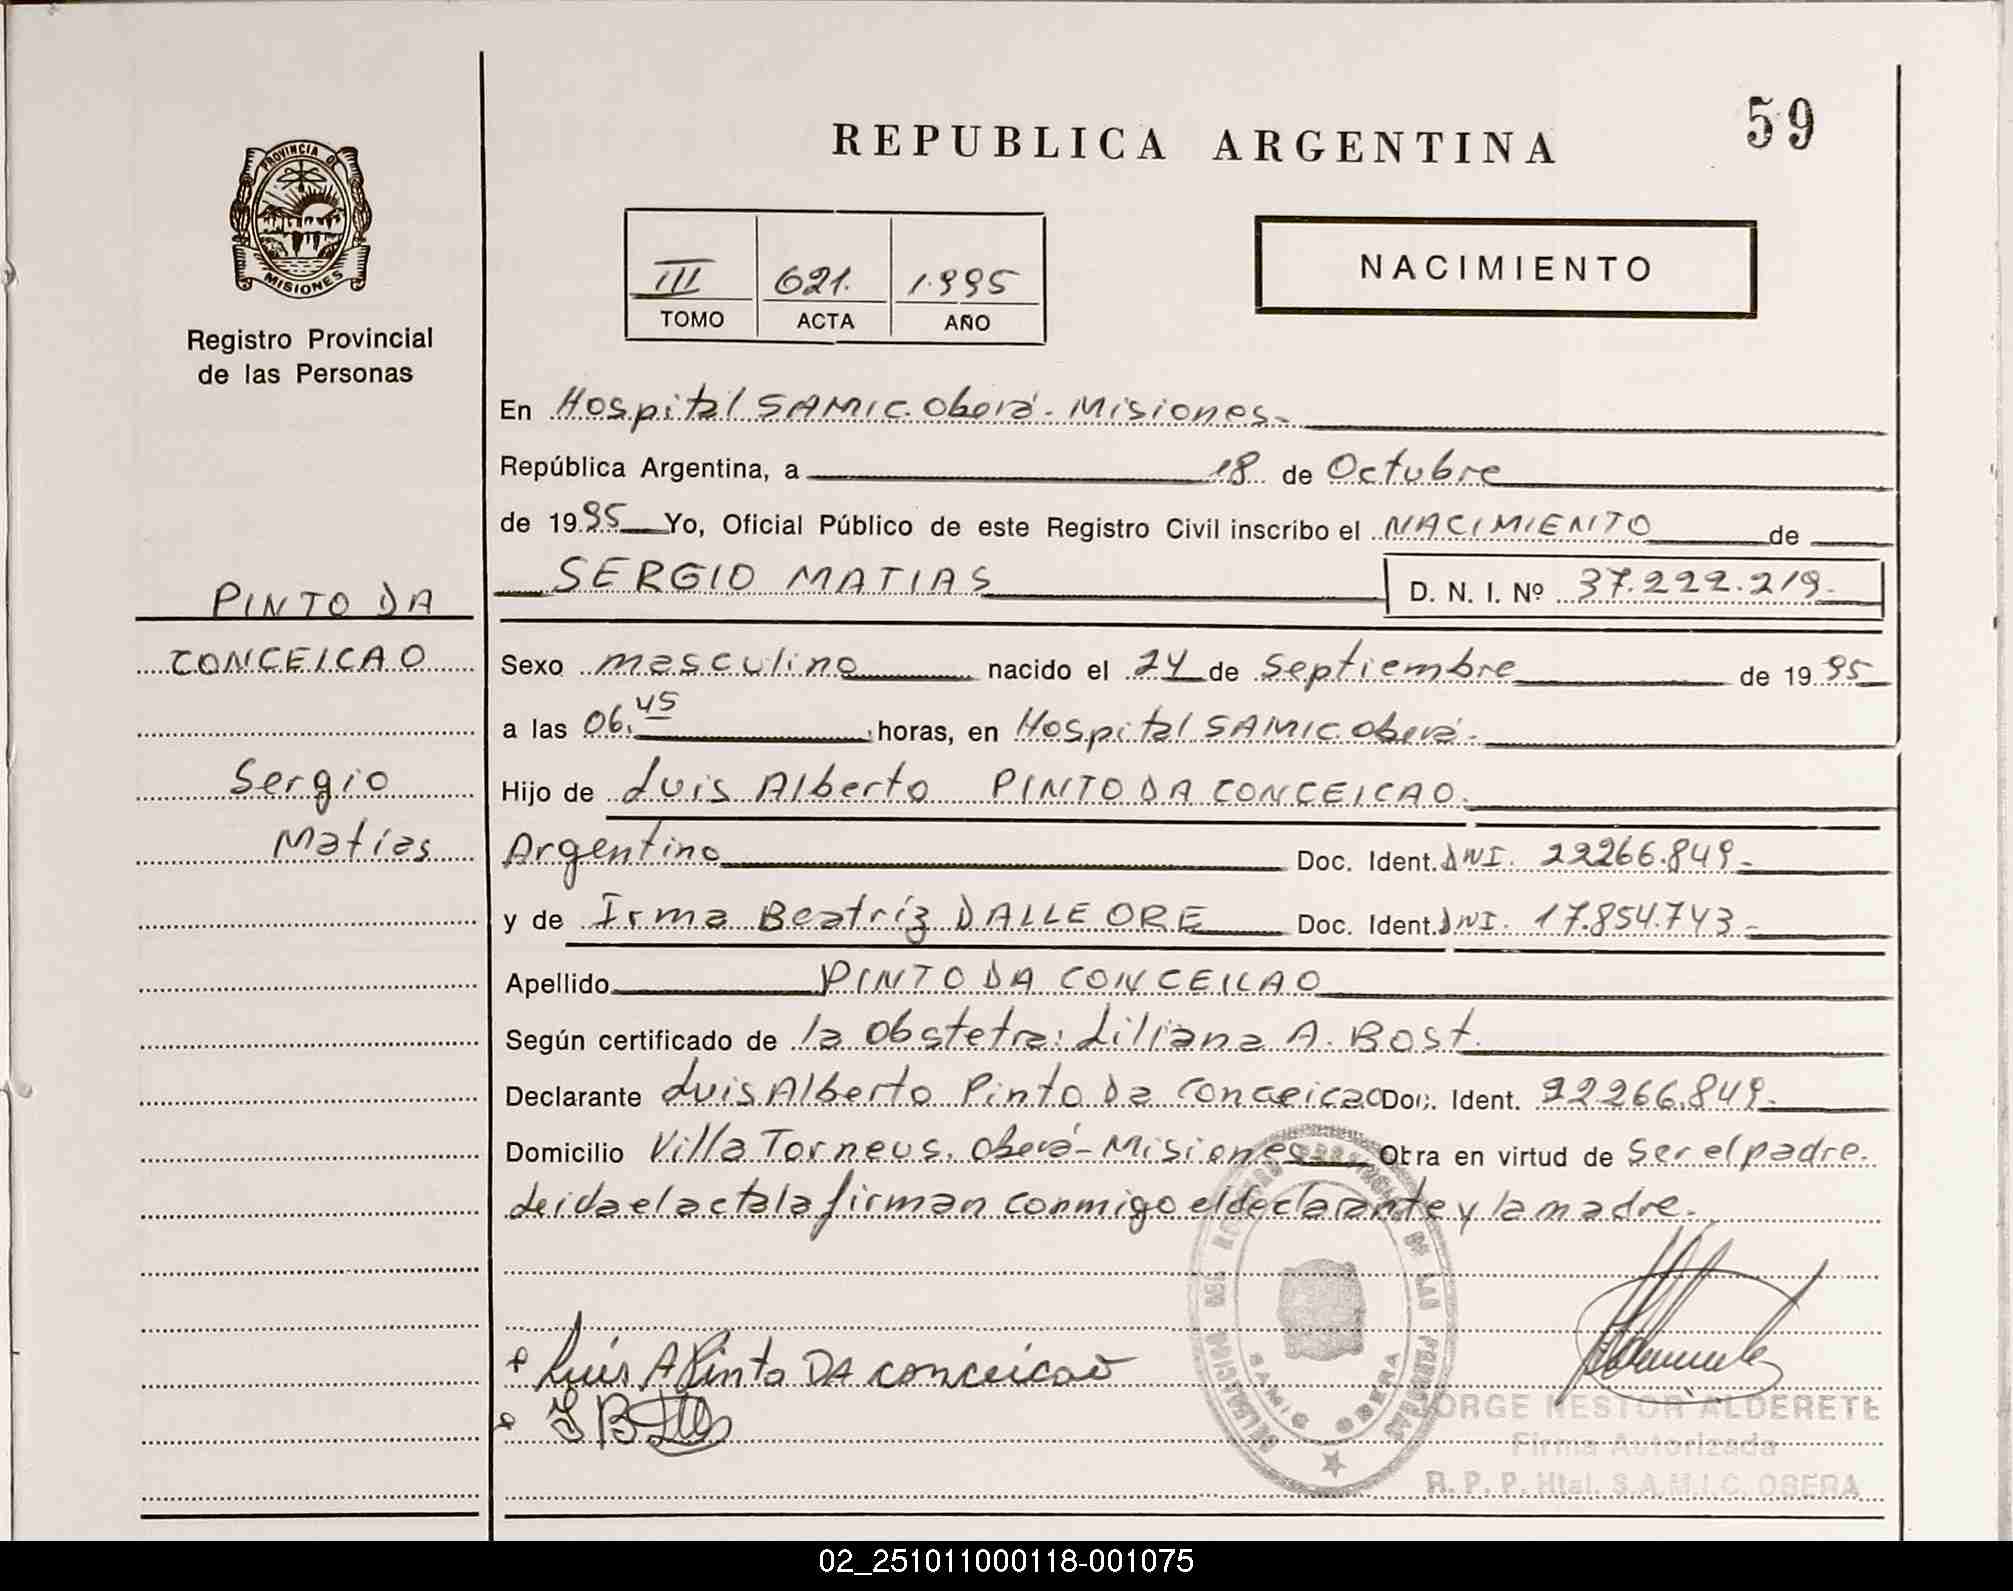 REPUBLICA ARGENTINA
59
PROVINCIA DE
MISIONES
Registro Provincial
de las Personas
III 621. 1.995
TOMO ACTA AÑO
NACIMIENTO
En Hospital SAMIC. Oberá - Misiones -
República Argentina, a 18 de Octubre
de 1995 Yo, Oficial Público de este Registro Civil inscribo el NACIMIENTO de
SERGIO MATIAS D. N. I. Nº 37.222.219.-
PINTO DA
CONCEICAO
Sergio
Matías
Sexo masculino nacido el 24 de Septiembre de 1995
a las 06.45 horas, en Hospital SAMIC. Oberá -
Hijo de Luis Alberto PINTO DA CONCEICAO.
Argentino Doc. Ident. DNI. 22266.849.-
y de Irma Beatríz DALLE ORE Doc. Ident. DNI. 17.854.743.-
Apellido PINTO DA CONCEICAO
Según certificado de la Obstetra: Liliana A. Bost.
Declarante Luis Alberto Pinto Da Conceicao Doc. Ident. 22266.849.
Domicilio Villa Torneus. Oberá - Misiones Obra en virtud de Ser el padre.
Leida el acta la firman conmigo el declarante y la madre.-
Luis A Pinto DA conceicao
DELEGACION DEL REGISTRO PROVINCIAL DE LAS PERSONAS
SAMIC OBERA
JORGE NESTOR ALDERETE
Firma Autorizada
R. P. P. Htal. S.A.M.I.C. OBERA
02_251011000118-001075